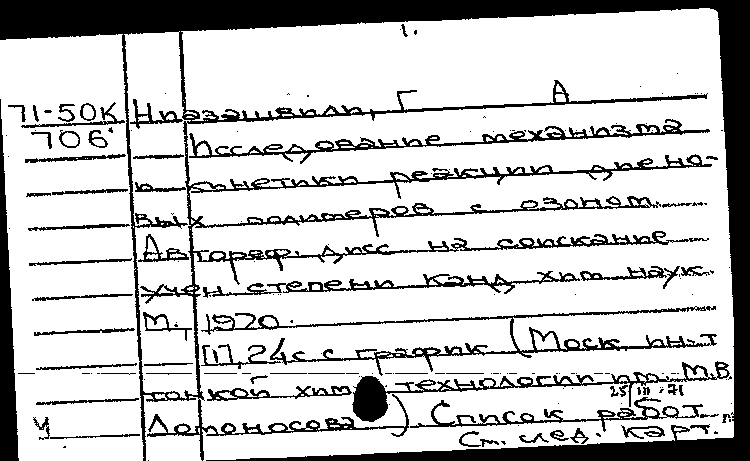 1.
71-50К Ниазашвили, Г А
706 Исследование механизма
и кинетики реакции диено-
вых полимеров с озоном.
Автореф. дисс на соискание
учен. степени канд хим наук.
М., 1970.
17,24с с график (Моск. ин-т
тонкой хим технологии им. М.В.
25 III 71
Ч Ломоносова). Список работ
См. след. карт.